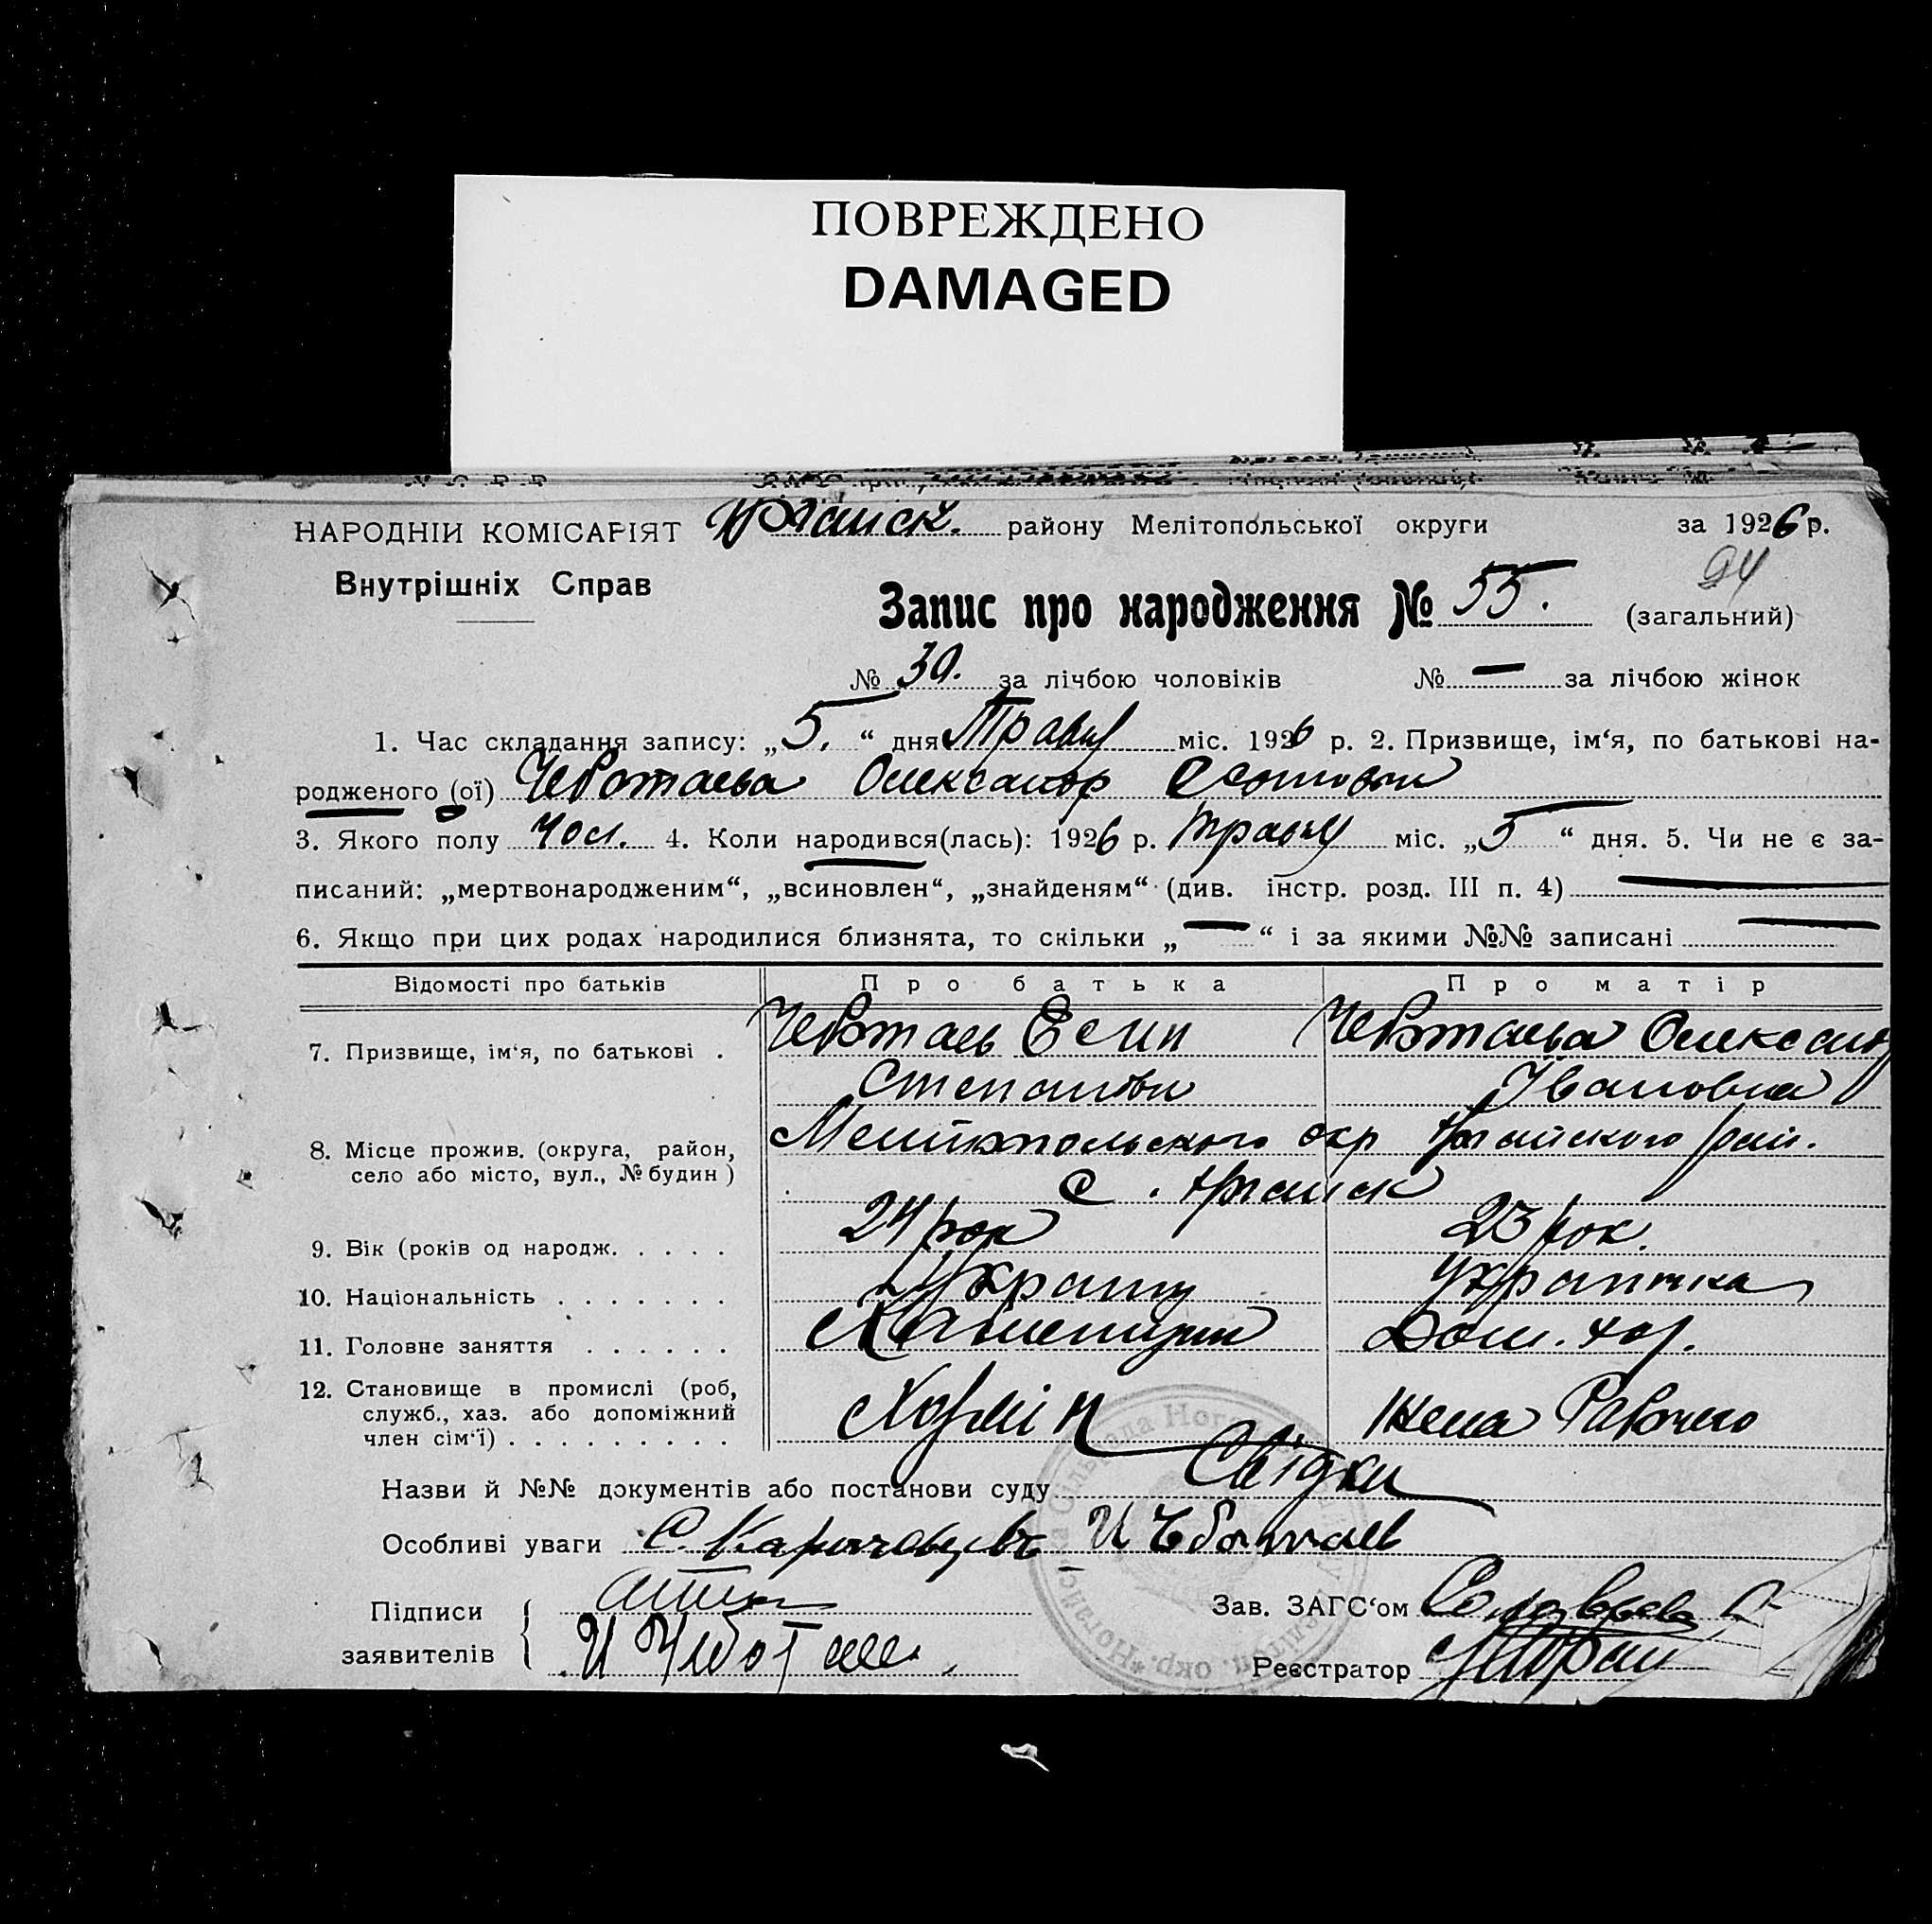 ПОВРЕЖДЕНО
DAMAGED
НАРОДНІЙ КОМІСАРІЯТ
Внутрішніх Справ
Ногайск. району Мелітопольської округи за 1926 р.
94
Запис про народження № 55. (загальний)
№ 30. за лічбою чоловіків № — за лічбою жінок
1. Час складання запису: „5.“ дня Травн міс. 1926 р. 2. Призвище, ім‘я, по батькові на-
родженого (ої) Чеботаева Олександр
3. Якого полу чол. 4. Коли народився(лась): 1926 р. травн міс. „5“ дня. 5. Чи не є за-
писаний: „мертвонародженим“, „всиновлен“, „знайденям“ (див. інстр. розд. III п. 4) —
6. Якщо при цих родах народилися близнята, то скільки „—“ і за якими №№ записані —
Відомості про батьків Про батька Про матір
7. Призвище, ім‘я, по батькові . Чеботаев Есип Чеботаева Олександ
Степанови Івановна
8. Місце прожив. (округа, район, Мелітопольского окр Ногайского рай.
село або місто, вул., № будин) с. Ногайск
9. Вік (років од народж. . . . . 24 рок 23 рок.
10. Національність . . . . . . . Украинц Украинка
11. Головне заняття . . . . . . Дом. хоз.
12. Становище в промислі (роб, 
служб., хаз. або допоміжний
член сім‘ї) . . . . . . . . . Хозяін Жена Рабочего
Назви й №№ документів або постанови суду Свідки
Особливі уваги И Чботаев
Підписи
заявителів И Чиботаев.
Зав. ЗАГС‘ом
Реєстратор